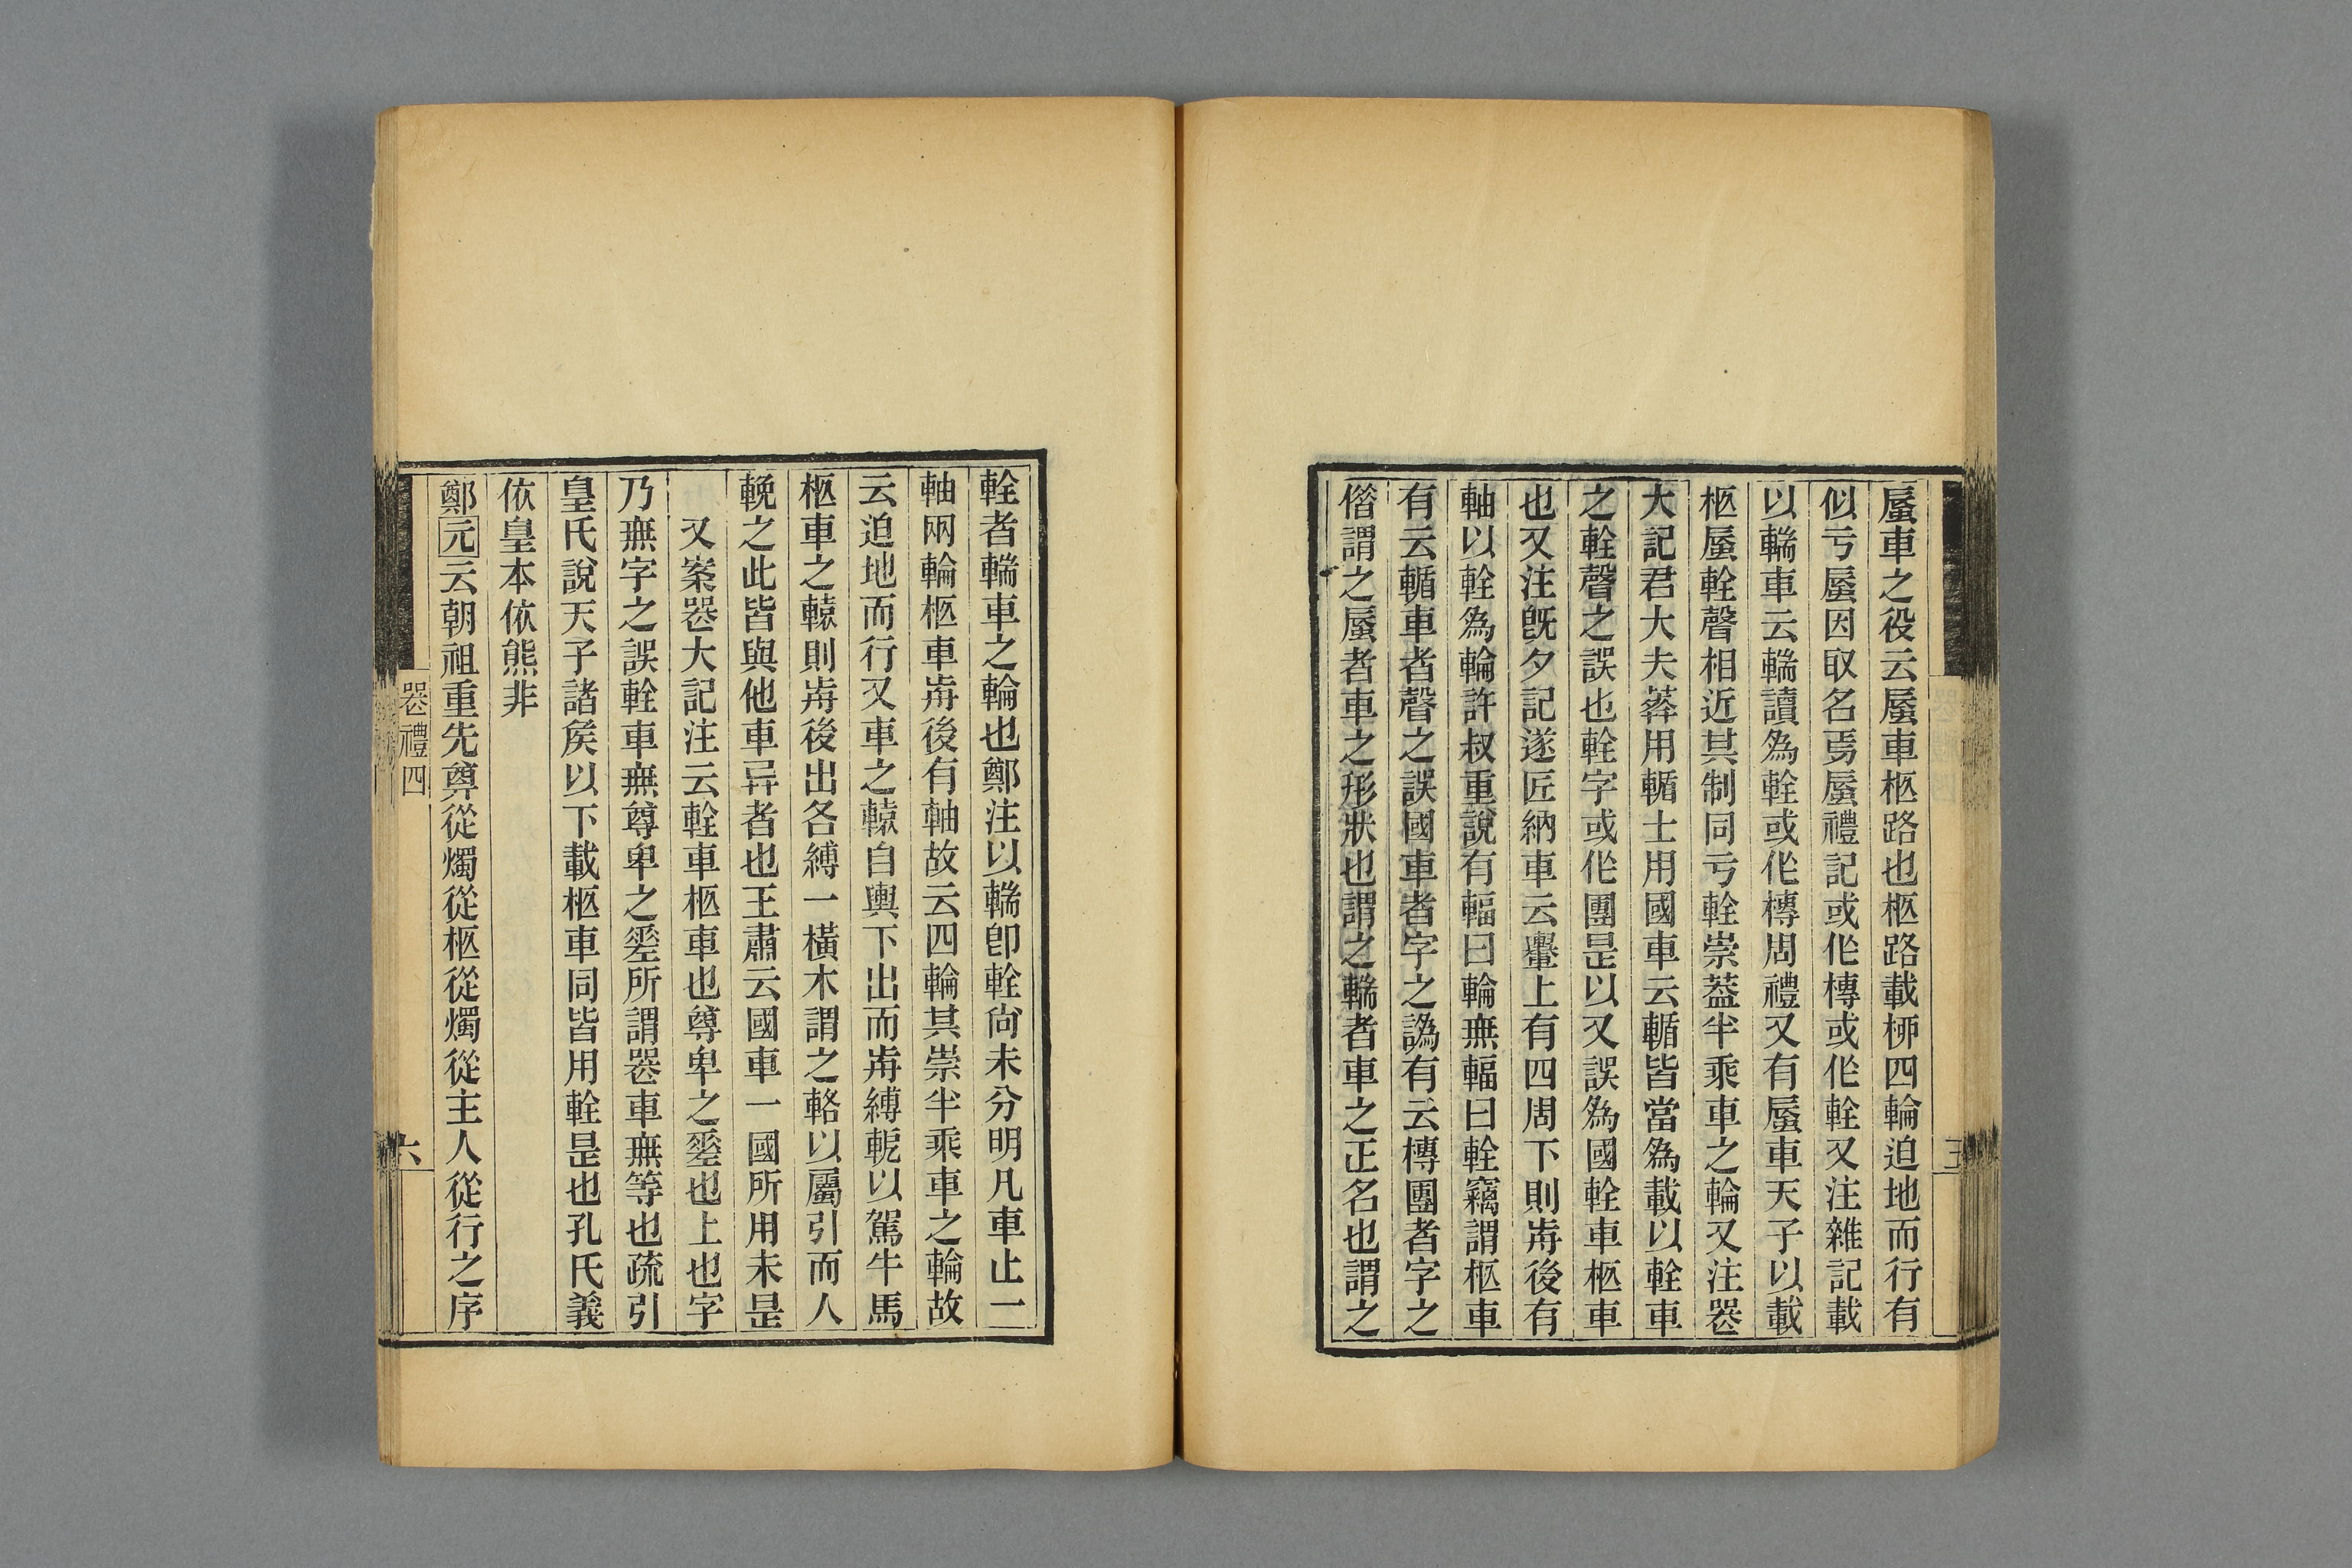 蜃車之役云蜃車柩路也柩路載桺四輪迫地而行有
似亏蜃因取名焉蜃禮記或作槫或作輇又注雜記載
以輲車云輲讀為輇或作槫周禮又有蜃車天子以載
柩蜃輇聲相近其制同亏輇崇葢半乘車之輪又注喪
大記君大夫葬用輴士用國車云輴皆當為載以輇車
之輇聲之誤也輇字或作團是以又誤為國輇車柩車
也又注旣夕記遂匠納車云轝上有四周下則歬後有
軸以輇為輪許叔重說有輻曰輪無輻曰輇竊謂柩車
有云輴車者聲之誤國車者字之譌有云槫團者字之
偣謂之蜃者車之形狀也謂之輲者車之正名也謂之
輇者輲車之輪也鄭注以輲卽輇尙未分明凡車止一
軸网輪柩車歬後有軸故云四輪其崇半乘車之輪故
云迫地而行又車之轅自輿下出而歬縛軛以駕牛馬
柩車之轅則歬後出各縛一橫木謂之輅以屬引而人
輓之此皆與他車异者也王肅云國車一國所用未是
又案喪大記注云輇車柩車也尊卑之差也上也字
乃無字之誤輇車無尊卑之差所謂喪車無等也疏引
皇氏說天子諸矦以下載柩車同皆用輇是也孔氏義
依皇本依熊非
鄭元云朝祖重先尊從燭從柩從燭從主人從行之序
喪禮四
六